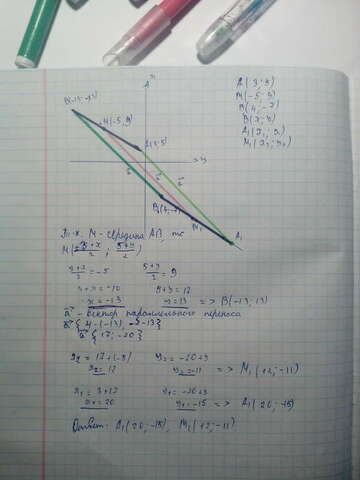 A(3; 5)
M(-5; 9)
B₁(4; -7)
B(x; y)
A₁(x₁; y₁)
M₁(x₂; y₂)
B(-13; 13)
M(-5; 9)
A(3; 5)
a⃗
a⃗
B₁(4; -7)
M₁
A₁
Т.к. M - середина AB, то
M(3+x/2 ; 5+y/2)
3+x/2 = -5 5+y/2 = 9
3+x = -10 5+y = 18
x = -13 y = 13 => B(-13; 13)
a⃗ - вектор параллельного переноса
a⃗ {4-(-13); -7-13}
a⃗ {17; -20}
x₂ = 17+(-5) y₂ = -20+9
x₂ = 12 y₂ = -11 => M₁(12; -11)
x₁ = 3+17 y₁ = -20+5
x₁ = 20 y₁ = -15 => A₁(20; -15)
Ответ: A₁(20; -15), M₁(12; -11)